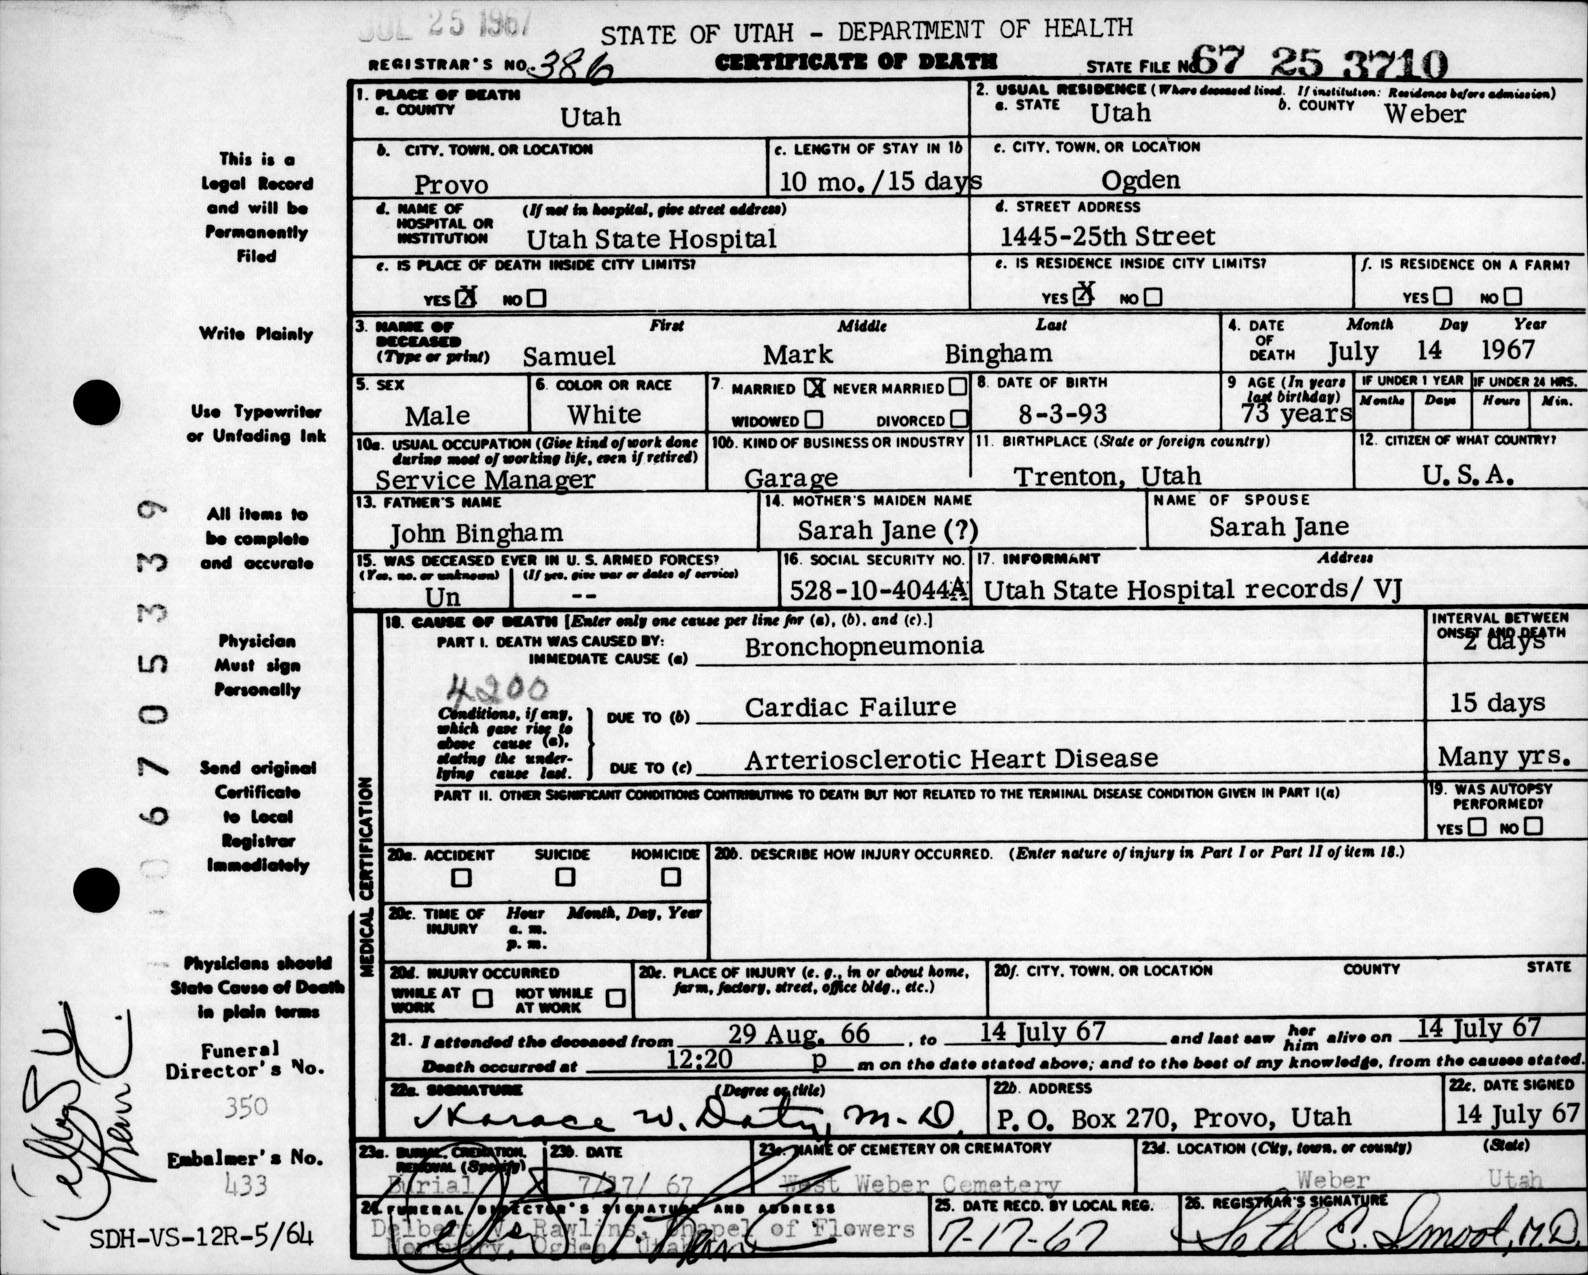 JUL 25 1967
STATE OF UTAH - DEPARTMENT OF HEALTH
REGISTRAR'S NO. 386
CERTIFICATE OF DEATH
STATE FILE NO. 67 25 3710
This is a
Legal Record
and will be
Permanently
Filed
Write Plainly
Use Typewriter
or Unfading Ink
All items to
be complete
and accurate
Physician
Must sign
Personally
Send original
Certificate
to Local
Registrar
Immediately
Physicians should
State Cause of Death
in plain terms
Funeral
Director's No.
350
Embalmer's No.
433
SDH-VS-12R-5/64
067053339
1. PLACE OF DEATH
a. COUNTY Utah
2. USUAL RESIDENCE (Where deceased lived. If institution: Residence before admission)
a. STATE Utah b. COUNTY Weber
b. CITY, TOWN, OR LOCATION
Provo
c. LENGTH OF STAY IN 1b
10 mo./15 days
c. CITY, TOWN, OR LOCATION
Ogden
d. NAME OF HOSPITAL OR INSTITUTION (If not in hospital, give street address)
Utah State Hospital
d. STREET ADDRESS
1445-25th Street
e. IS PLACE OF DEATH INSIDE CITY LIMITS?
YES X NO
e. IS RESIDENCE INSIDE CITY LIMITS?
YES X NO
f. IS RESIDENCE ON A FARM?
YES NO
3. NAME OF DECEASED (Type or print)
First Middle Last
Samuel Mark Bingham
4. DATE OF DEATH
Month Day Year
July 14 1967
5. SEX
Male
6. COLOR OR RACE
White
7. MARRIED X NEVER MARRIED
WIDOWED DIVORCED
8. DATE OF BIRTH
8-3-93
9 AGE (In years last birthday)
73 years
IF UNDER 1 YEAR
Months Days
IF UNDER 24 HRS.
Hours Min.
10a. USUAL OCCUPATION (Give kind of work done during most of working life, even if retired)
Service Manager
10b. KIND OF BUSINESS OR INDUSTRY
Garage
11. BIRTHPLACE (State or foreign country)
Trenton, Utah
12. CITIZEN OF WHAT COUNTRY?
U.S.A.
13. FATHER'S NAME
John Bingham
14. MOTHER'S MAIDEN NAME
Sarah Jane (?)
NAME OF SPOUSE
Sarah Jane
15. WAS DECEASED EVER IN U. S. ARMED FORCES?
(Yes, no, or unknown) (If yes, give war or dates of service)
Un --
16. SOCIAL SECURITY NO.
528-10-4044A
17. INFORMANT Address
Utah State Hospital records/ VJ
MEDICAL CERTIFICATION
18. CAUSE OF DEATH [Enter only one cause per line for (a), (b), and (c).]
PART I. DEATH WAS CAUSED BY:
IMMEDIATE CAUSE (a) Bronchopneumonia
INTERVAL BETWEEN ONSET AND DEATH
2 days
4200
Conditions, if any, which gave rise to above cause (a), stating the underlying cause last.
DUE TO (b) Cardiac Failure
15 days
DUE TO (c) Arteriosclerotic Heart Disease
Many yrs.
PART II. OTHER SIGNIFICANT CONDITIONS CONTRIBUTING TO DEATH BUT NOT RELATED TO THE TERMINAL DISEASE CONDITION GIVEN IN PART I(a)
19. WAS AUTOPSY PERFORMED?
YES NO
20a. ACCIDENT SUICIDE HOMICIDE
20b. DESCRIBE HOW INJURY OCCURRED. (Enter nature of injury in Part I or Part II of item 18.)
20c. TIME OF INJURY Hour Month, Day, Year
a. m.
p. m.
20d. INJURY OCCURRED
WHILE AT WORK NOT WHILE AT WORK
20e. PLACE OF INJURY (e. g., in or about home, farm, factory, street, office bldg., etc.)
20f. CITY, TOWN, OR LOCATION COUNTY STATE
21. I attended the deceased from 29 Aug. 66, to 14 July 67 and last saw her him alive on 14 July 67
Death occurred at 12:20 p m on the date stated above; and to the best of my knowledge, from the causes stated.
22a. SIGNATURE (Degree or title)
Horace W. Doty, M.D.
22b. ADDRESS
P.O. Box 270, Provo, Utah
22c. DATE SIGNED
14 July 67
23a. BURIAL, CREMATION, REMOVAL (Specify)
Burial
23b. DATE
7/17/67
23c. NAME OF CEMETERY OR CREMATORY
West Weber Cemetery
23d. LOCATION (City, town, or county) (State)
Weber Utah
24. FUNERAL DIRECTOR'S SIGNATURE AND ADDRESS
Delbert V. Rawlins, Chapel of Flowers
Mortuary, Ogden, Utah
25. DATE RECD. BY LOCAL REG.
7-17-67
26. REGISTRAR'S SIGNATURE
Seth E. Smoot, M.D.